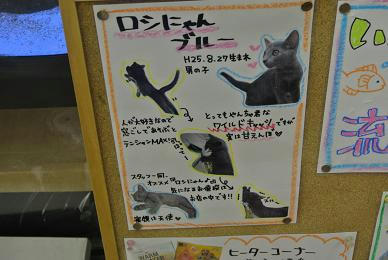 ロシにゃん
ブルー
H25.8.27生まれ
男の子
人が大好きなので
窓ごしであそぶと
テンションMAX!!
とってもやんちゃな
ワイルドキャッツですが
実は甘えんぼ
スタッフ一同、
オススメ「ロシにゃん」の
気になるお値段は
お店の中です!!
寝顔は天使
い
流
ヒーターコーナー